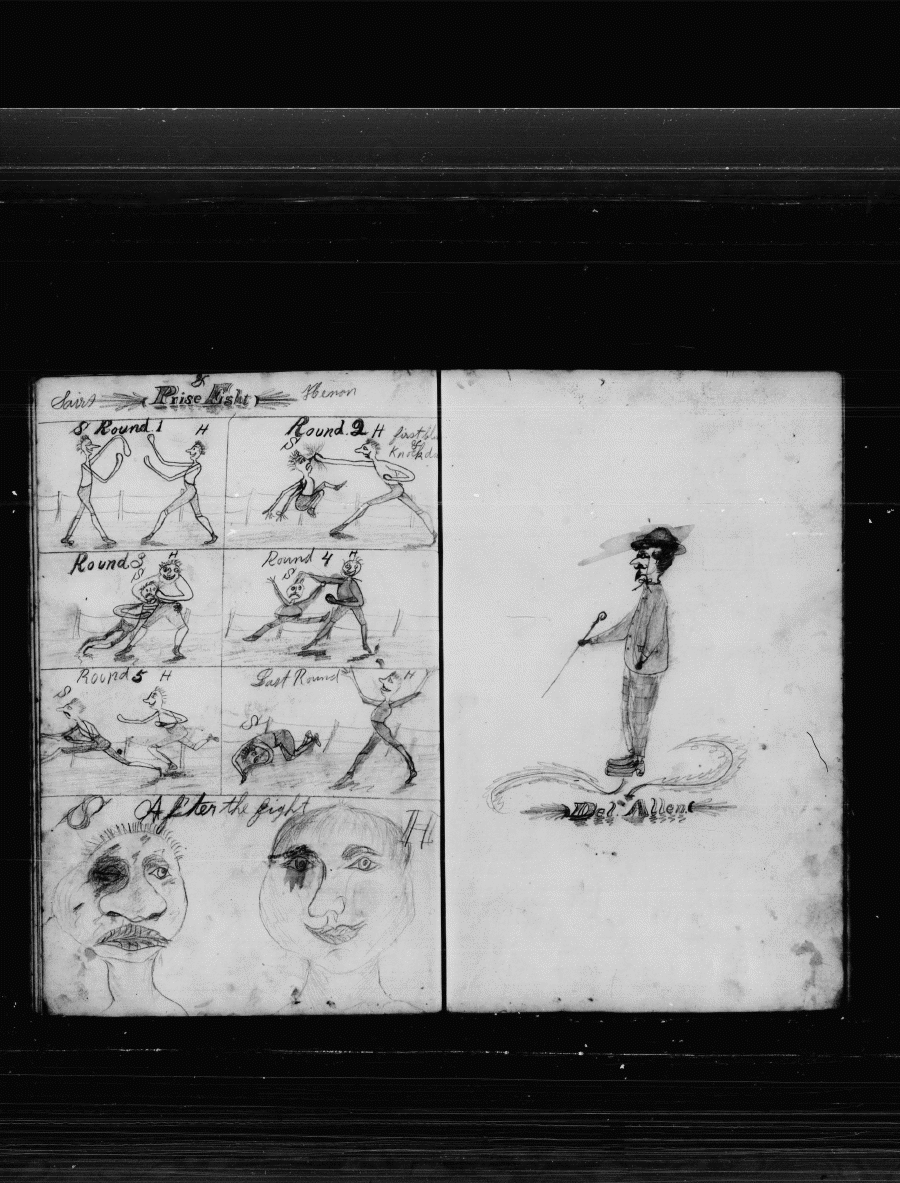 &
Sairs Prise Fight Henon
S Round.1 H
Round.2 H first
S of
Round 3 H
S
Round 4 H
S
Round 5 H
S
Last Round H
S
S After the fight H
Del. Allen